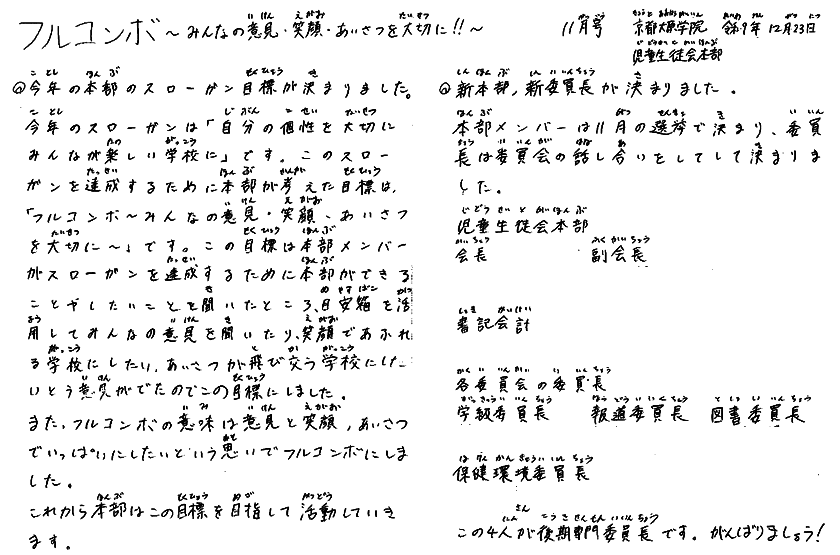 フルコンボ～みんなの意見・笑顔・あいさつを大切に!!～
11月号
京都大原学院 令和9年12月23日
児童生徒会本部
◎今年の本部のスローガン目標が決まりました。
今年のスローガンは「自分の個性を大切に
みんなが楽しい学校に」です。このスロー
ガンを達成するために本部が考えた目標は、
「フルコンボ～みんなの意見・笑顔・あいさつ
を大切に～」です。この目標は本部メンバー
がスローガンを達成するために本部ができる
ことやしたいことを聞いたところ、目安箱を活
用してみんなの意見を聞いたり、笑顔であふれ
る学校にしたい、あいさつが飛び交う学校にした
いという意見がでたのでこの目標にしました。
また、フルコンボの意味は意見と笑顔、あいさつ
でいっぱいにしたいという思いでフルコンボにしま
した。
これから本部はこの目標を目指して活動していき
ます。
◎新本部,新委員長が決まりました。
本部メンバーは11月の選挙で決まり、委員
長は委員会の話し合いをしてして決まりま
した。
児童生徒会本部
会長 副会長
書記会計
各委員会の委員長
学級委員長 報道委員長 図書委員長
保健環境委員長
この4人が後期専門委員長です。がんばりましょう!